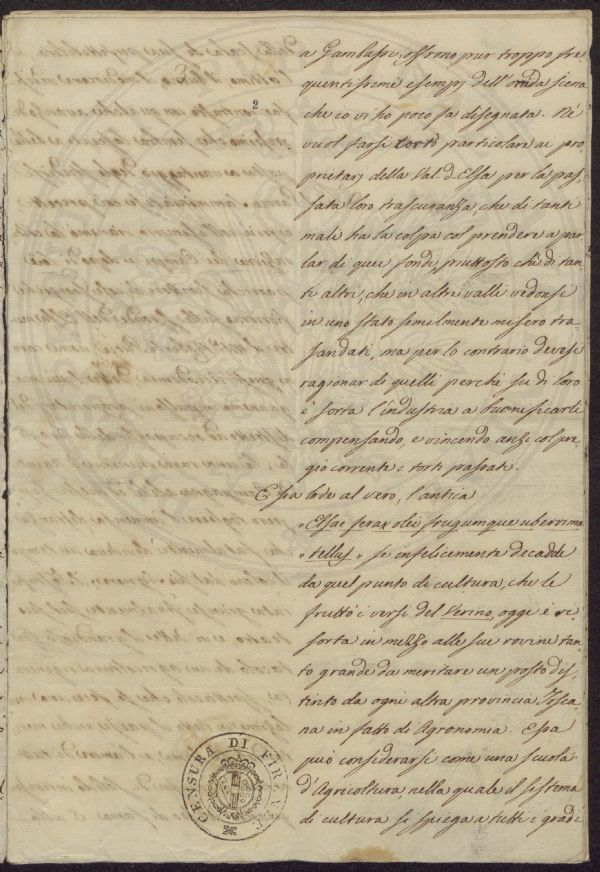 2
a Gambassi, offrono pur troppo fre
quentissimi esempj dell'onda siena
che io vi ho poco fa disegnata. Nè
vuol farsi torto particolare ai pro
prietarj della Val-d'Elsa per la pas
sata loro trascuranza, che di tanti
mali ha la colpa col prendere a par
lar di quei fondi, piuttosto che di tan
ti altri, che in altre valli vedonsi
in uno stato similmente misero tra
sandati, ma per lo contrario devesi
ragionar di quelli perchè su di loro
è sorta l'industria a buonificarli
compensando, e vincendo anzi col pre
gio corrente i torti passati.
E sia lode al vero, l'antica
"Elsae ferax olei frugumque uberrima
"tellus" se infelicemente decadde
da quel punto di cultura, che le
fruttò i versi del Verino, oggi è ri
sorta in mezzo alle sue rovine tan
to grande da meritare un posto dis
tinto da ogni altra provincia Tosca
na in fatto di Agronomia. Essa
può considerarsi come una scuola
d'Agricoltura, nella quale il sistema
di cultura si spiega a tutti i gradi
CENSURA DI FIRENZE